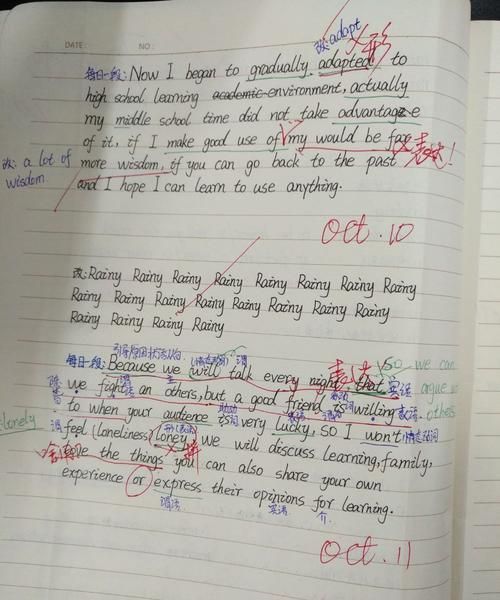 DATE: NO:
改: adapt
形
每日一段: Now I began to gradually adapted to
high school learning academic environment, actually
my middle school time did not take advantage
of it, if I make good use of my would be far
表达!
改: a lot of wisdom.
more wisdom, if you can go back to the past
and I hope I can learn to use anything.
Oct. 10
改: Rainy Rainy Rainy Rainy Rainy Rainy Rainy Rainy
Rainy Rainy Rainy Rainy Rainy Rainy Rainy Rainy
Rainy Rainy Rainy Rainy
每日一段: Because we will talk every night that
so we can
we fight an others, but a good friend is willing
argue
to when your audience is very lucky, so I won't
others
lonely
feel (loneliness) loney, we will discuss learning, family,
the things you can also share your own
experience or express their opinions for learning.
宾语 介
Oct. 11